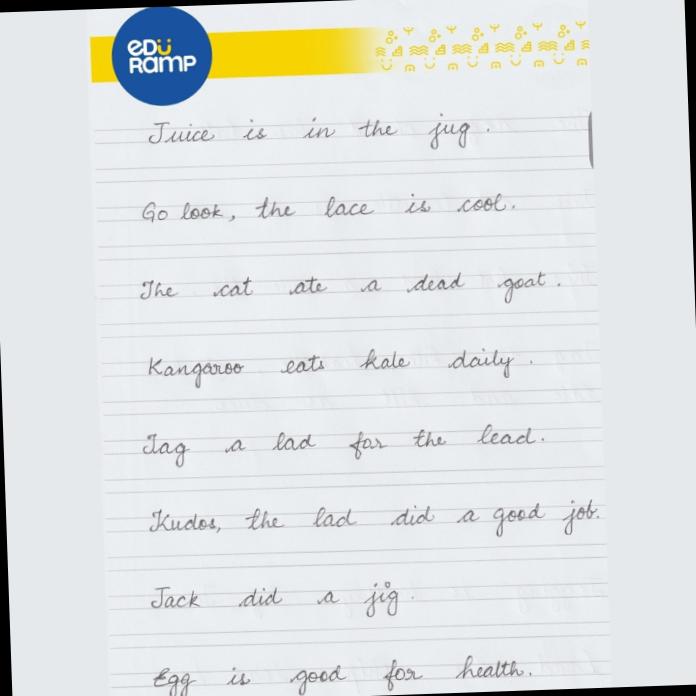 EDÜ
RAMP
Juice is in the jug.
Go look, the lace is cool.
The cat ate a dead goat.
Kangaroo eats kale daily.
Tag a lad for the lead.
Kudos, the lad did a good job.
Jack did a jig.
Egg is good for health.